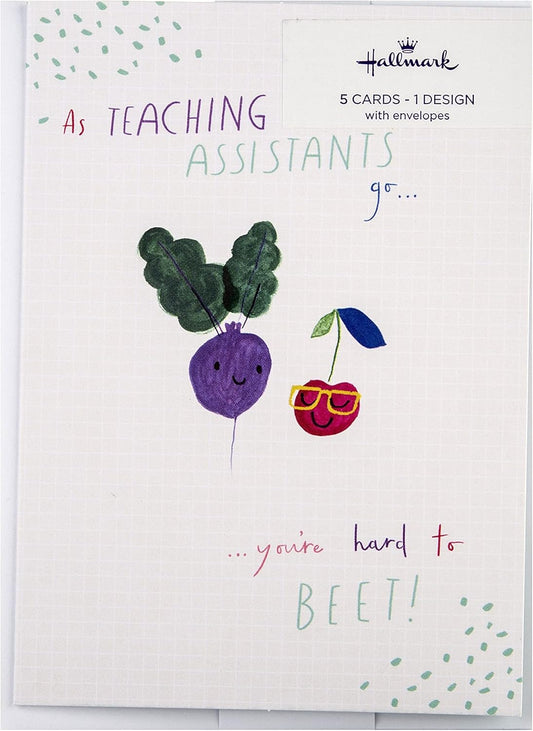 Hallmark
5 CARDS - 1 DESIGN
with envelopes
As TEACHING
ASSISTANTS
go...
...you're hard to
BEET!